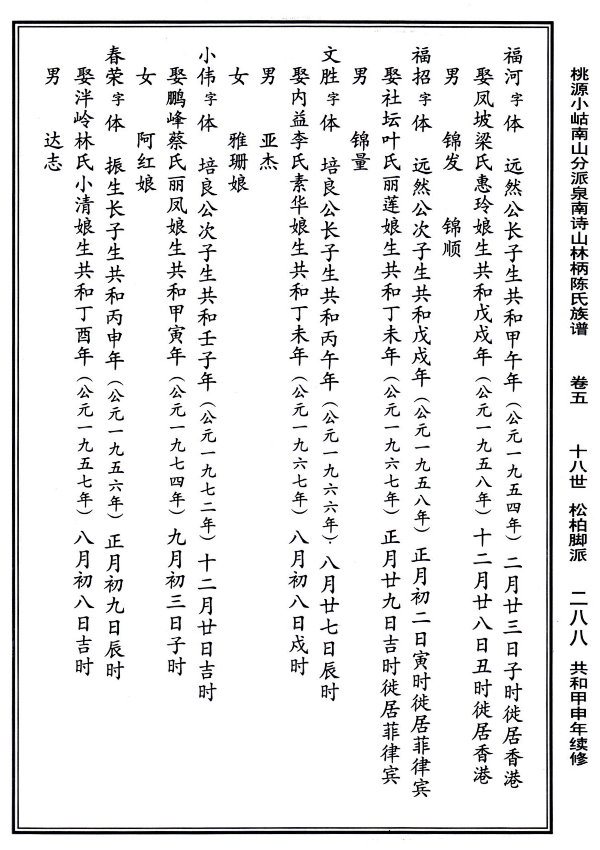 桃源小岵南山分派泉南诗山林柄陈氏族谱 卷五 十八世 松柏脚派 二八八 共和甲申年续修
福河 字 体 远然公长子生共和甲午年（公元一九五四年）二月廿三日子时徙居香港
娶凤坡梁氏惠玲娘生共和戊戌年（公元一九五八年）十二月廿八日丑时徙居香港
男 锦发 锦顺
福招 字 体 远然公次子生共和戊戌年（公元一九五八年）正月初二日寅时徙居菲律宾
娶社坛叶氏丽莲娘生共和丁未年（公元一九六七年）正月廿九日吉时徙居菲律宾
男 锦量
文胜 字 体 培良公长子生共和丙午年（公元一九六六年）．八月廿七日辰时
娶内益李氏素华娘生共和丁未年（公元一九六七年）八月初八日戌时
男 亚杰
女 雅珊娘
小伟 字 体 培良公次子生共和壬子年（公元一九七二年）十二月廿日吉时
娶鹏峰蔡氏丽凤娘生共和甲寅年（公元一九七四年）九月初三日子时
女 阿红娘
春荣 字 体 振生长子生共和丙申年（公元一九五六年）正月初九日辰时
娶泮岭林氏小清娘生共和丁酉年（公元一九五七年）八月初八日吉时
男 达志